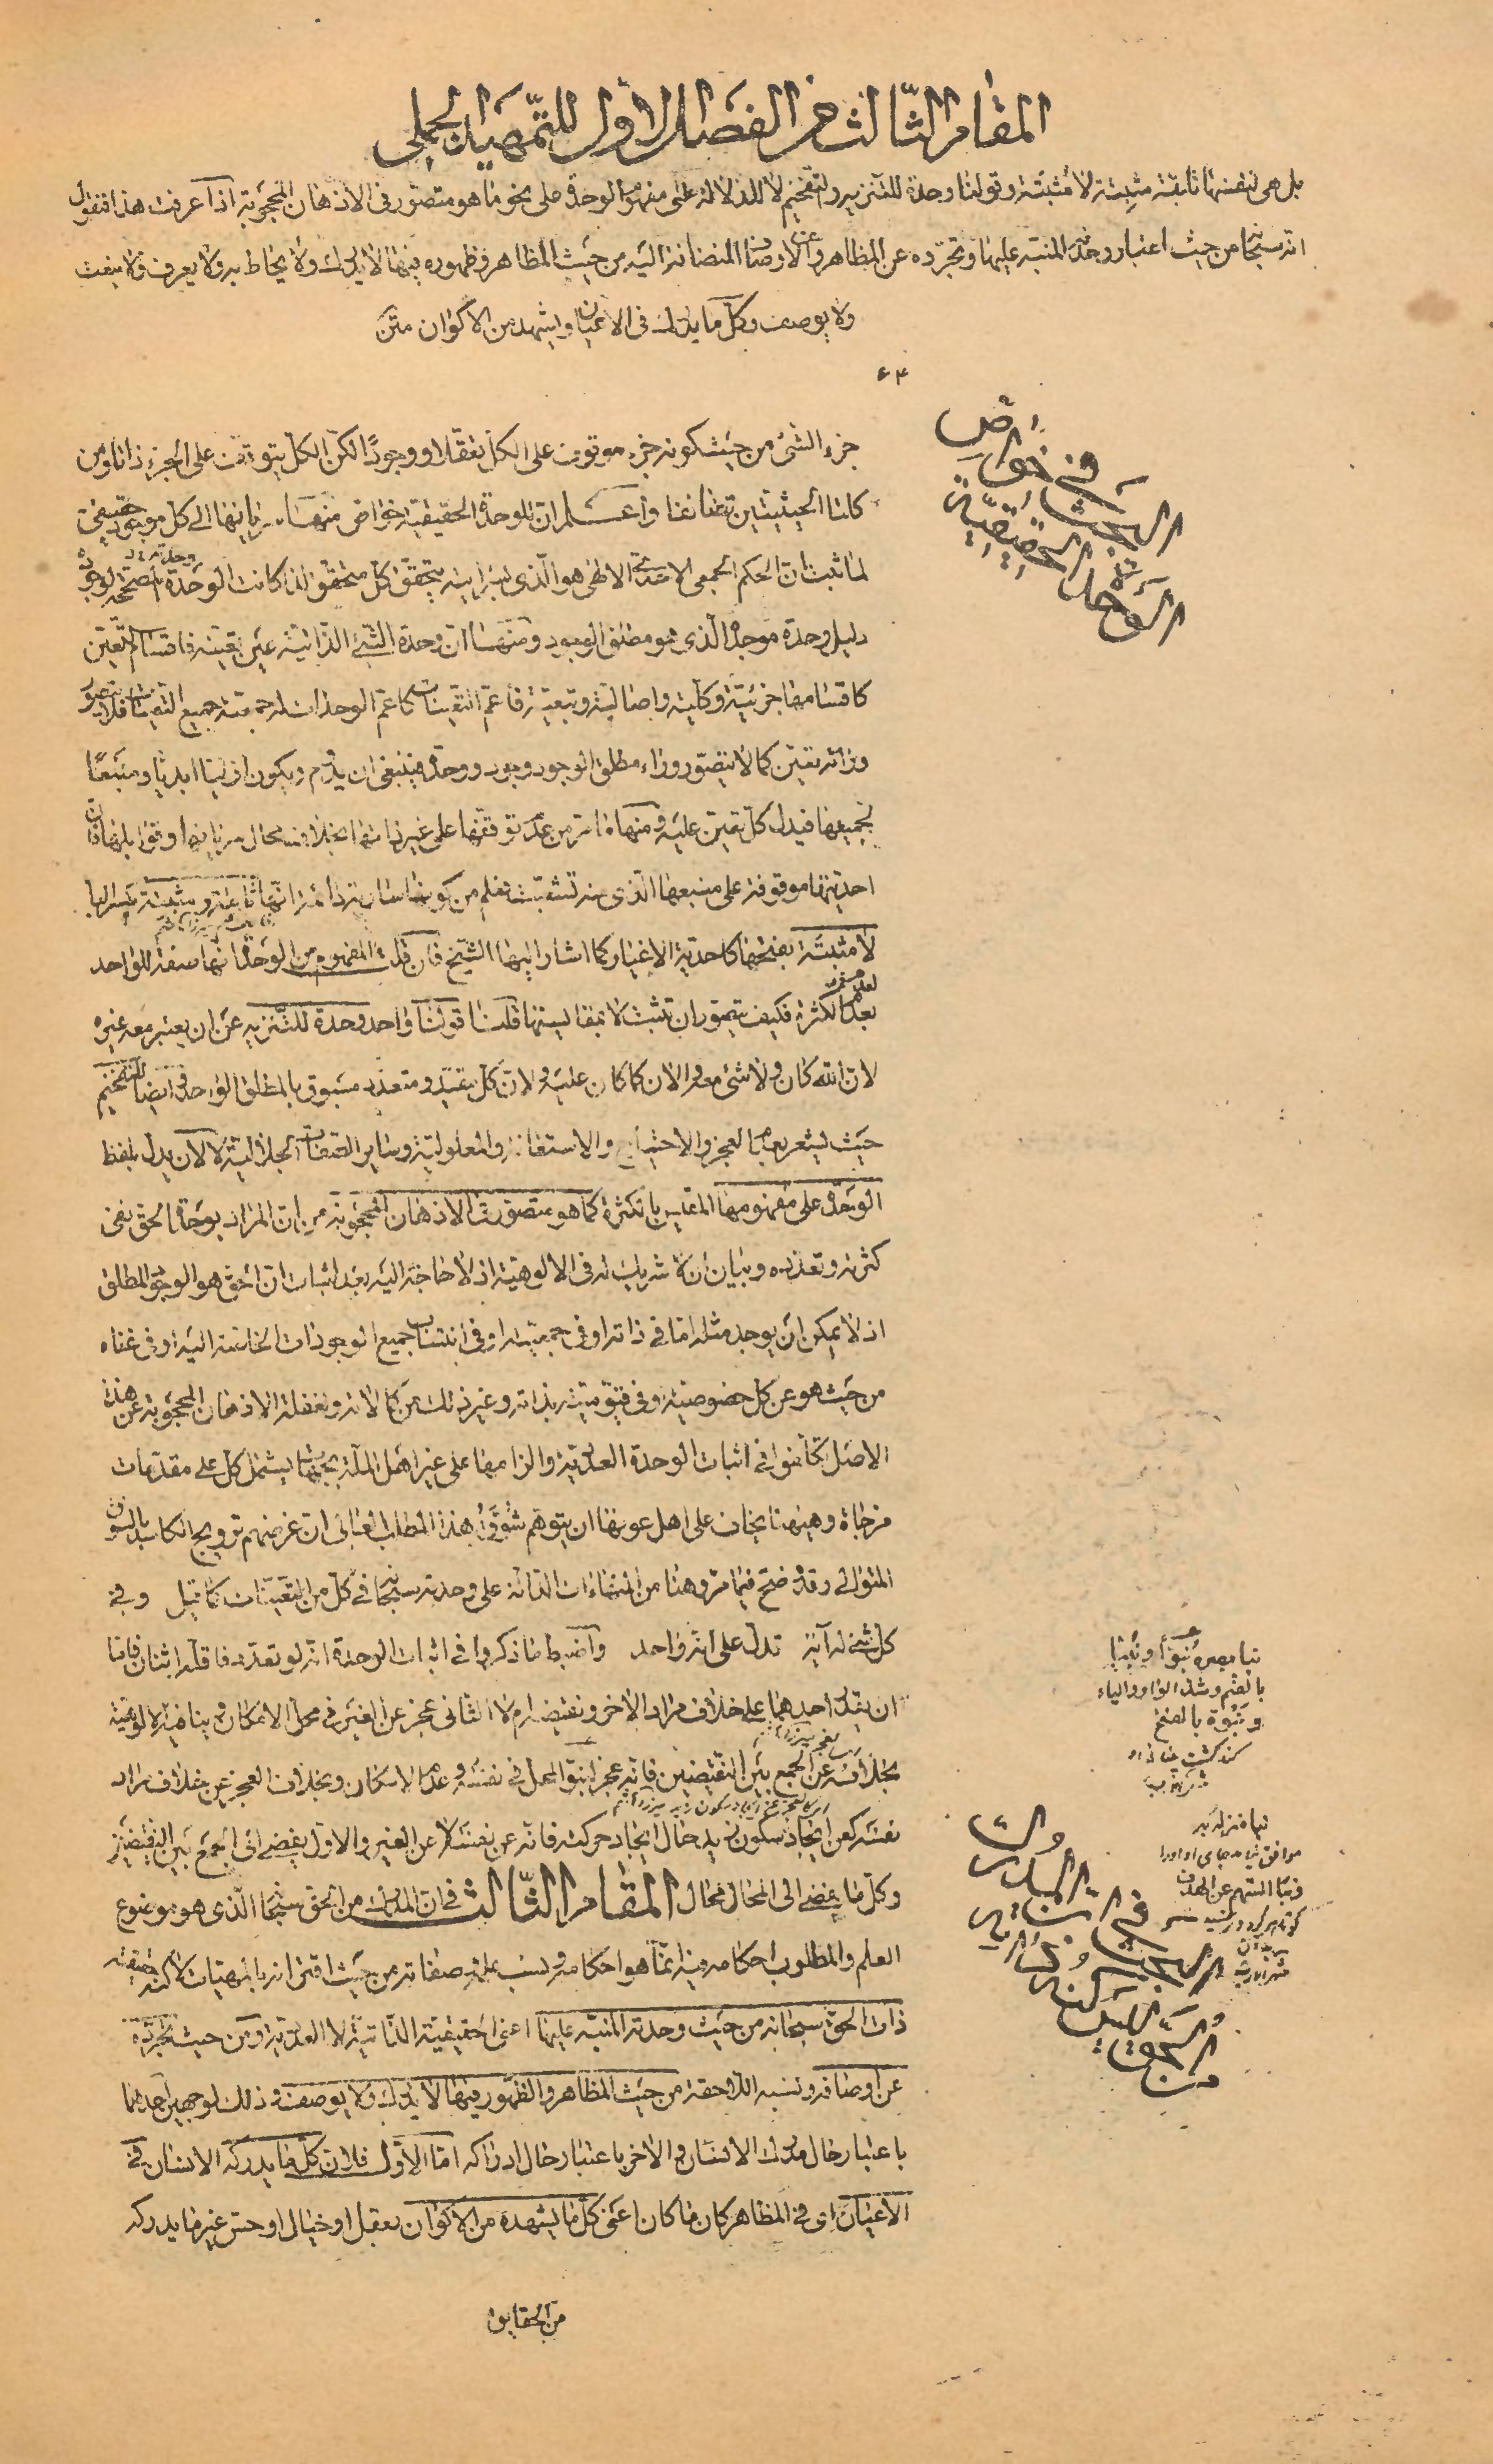 المقام الثالث من الفصل الأول للتمهيد الجملي
بل هي لنفسها ثابتة مثبِتة لا مثبَتة وقولنا وحدة للتنزيه والتفخيم لا للدلالة على مفهوم الوحدة على نحو ما هو متصور في الاذهان المحجوبة اذا عرفت هذا فنقول
انه سبحانه من حيث اعتبار وحدته المنبه عليها وتجرده عن المظاهر وعن الاوصاف المضافة اليه من حيث المظاهر وظهوره فيها لا يدرك ولا يحاط به ولا يعرف ولا ينعت
ولا يوصف وكل ما يدرك في الاعيان ويشهد من الاكوان متن
۶۴
البحث في خواص
الوحدة الحقيقية
جزء الشئ من حيث كونه جزء موقوف على الكل تعقلا ووجودًا لكن الكل يتوقف على الجزء ذاتا ومن
كلتا الحيثيتين تضايفا واعلم ان للوحدة الحقيقية خواص منها سرايتها الى كل موجود حقيقى
لما ثبت ان الحكم الجمعى الاحدى الالهى هو الّذى بسرايته يتحقق كل متحقق لذا كانت الوحدة
دليل وحدة موجده الّذى هو مطلق الوجود ومنها ان وحدة الشئ الذاتية عين تعينه فاقسام التعين
كاقسامها جزئية وكلية واصالية وتبعية فاعم التعينات كاعم الوحدات له جمعية جميع التعينات فلا يتصور
ورائه تعين كما لا يتصور وراء مطلق الوجود وجود ووحدة فينبغى ان يقدم ويكون ازليا ابديا ومنبعًا
لجميعها فيدل كل تعين عليه ومنها ما مر من عدم توقفها على غير ذاتها بخلاف محال سرايتها وقوابلها فان
احديتها موقوفة على منبعها الّذى منه تشعبت فعلم من كونها سارية دائمة انها ثابتة ومثبِتة بكسر الباء
لا مثبَتة بفتحها كاحدية الاغيار كما اشار اليها الشيخ فان قلت المفهوم من الوحدة انها صفة للواحد
بعدم الكثرة فكيف يتصور ان تثبت لا بمقايستها قلنا قولنا واحد وحدة للتنزيه عن ان يعتبر معه غيره
لان الله كان ولا شئ معه والان كما كان عليه ولان كل مقيد ومتعدد مسبوق بالمطلق الواحد وايضا للتفخيم
حيث يشعر بعدم العجز والاحتياج والاستعانة والمعلولية وساير الصفات الجلالية لا لان يدل بلفظ
الوحدة على مفهومها المقابل بالكثرة كما هو متصور الاذهان المحجوبة من ان المراد بوحدة الحق نفى
كثرته وتعدده وبيان ان لا شريك له في الالوهية اذ لا حاجة اليه بعد اثبات ان الحق هو الوجود المطلق
اذ لا يمكن ان يوجد مثله اما في ذاته او في جمعيته او في انتساب جميع الوجودات الخاصة اليه او في غناه
من حيث هو عن كل خصوصية وفي قيوميته بذاته وغير ذلك من كمالاته ولغفلة الاذهان المحجوبة عن هذا
الاصل تكلفوا في اثبات الوحدة العددية والزامها على غير اهل الملة بحجج يشتمل كل على مقدمات
مزجاة وههنا يخاف على اهل عوسها ان يتوهم شوقا لهذا المطلب العالى ان غرضهم ترويج الكاسد بالسوق
المتوالى وقد وضح فيما مر وهنا من انشاءات الدالة على وحدته سبحانه في كل من التعينات كما قيل وفي
كل شئ له آية تدل على انه واحد واضبط ما ذكروا في اثبات الوحدة انه لو تعدد فاقله اثنان فاما
ان يقدر احدهما على خلاف مراد الاخر ونقيضه ام لا الثانى عجز عن الغير في محل الامكان وينافيه الالوهية
بخلافه عن الجمع بين النقيضين فانه عجز لنبو المحل في نفسه وعدم الامكان وبخلاف العجز عن خلاف مراد
نفسه كعن ايجاد سكون زيد حال ايجاد حركته فانه عن نفسه لا عن الغير والاول يفضى الى الجمع بين النقيضين
وكل ما يفضى الى المحال محال المقام الثالث في ان المدرك من الحق سبحانه الّذى هو موضوع
العلم والمطلوب احكامه فيه انما هو احكامه ونسب علمه وصفاته من حيث اقترانه بالمهيات لا كنه حقيقته
ذات الحق سبحانه من حيث وحدته المنبه عليها اعنى الحقيقية الذاتية لا العددية ومن حيث تجرده
عن اوصافه ونسبه اللاحقة من حيث المظاهر والظهور فيها لا يدرك ولا يوصف وذلك لوجهين احدهما
باعتبار حال مدرك الانسان والاخر باعتبار حال ادراكه اما الاول فلان كل ما يدركه الانسان في
الاعيان اى في المظاهر كان ما كان اعنى كل ما يشهده من الاكوان بعقل او خيال او حس غير ما يدركه
من الحقايق
نبا بصره نبوا ونبيا
بالضم وشد الواو والياء
ونبوة بالفتح
البحث في اثبات المدرك
من الحق